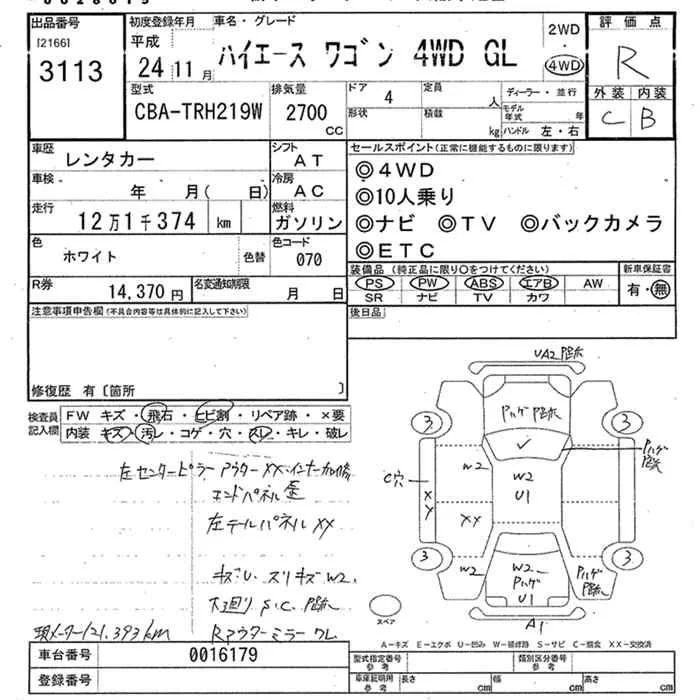 出品番号
初度登録年月
車名・グレード
2WD
評価点
[21661
3113
平成
24 11 月
ハイエース ワゴン 4WD GL
4WD
R
型式
排気量
ドア
定員
ディーラー・並行
外装 内装
CBA-TRH219W
2700
CC
4
人
形状
積載
kg
モデル年式
年
ハンドル 左・右
C B
車歴
レンタカー
シフト
AT
セールスポイント(正常に機能するものに限ります)
車検
年 月( 日)
冷房
AC
◎4WD
◎10人乗り
走行
12万1千374 km
燃料
ガソリン
◎ナビ ◎TV ◎バックカメラ
◎ETC
色
ホワイト
色替
色コード
070
装備品(純正品に限り○をつけてください)
新車保証書
PS PW ABS エアB AW
有・無
SR ナビ TV カワ
R券
14,370 円
名変通知期限
月 日
注意事項申告欄(不具合内容等は具体的に記入して下さい)
後日品
修復歴 有〔箇所 〕
検査員
記入欄
FW キズ・飛石・ヒビ割・リペア跡・×要
内装 キズ・汚レ・コゲ・穴・スレ・キレ・破レ
UA2
3
3
W2
W2
U1
C穴
X
Y
XX
3
3
W2
W2
U1
A1
左センターピラーアウターXX・インナー
エンドパネル 歪
左テールパネル XX
キズU スリキズW2
下廻り S.C.
現メーター121,393km
Rアウターミラー ワレ
スペア
A-キズ E-エクボ U-凹み W-補修跡 S-サビ C-腐食 XX-交換済
車台番号
0016179
登録番号
型式指定番号
参考
類別区分番号
参考
車庫証明用
参考
長さ cm
幅 cm
高さ cm